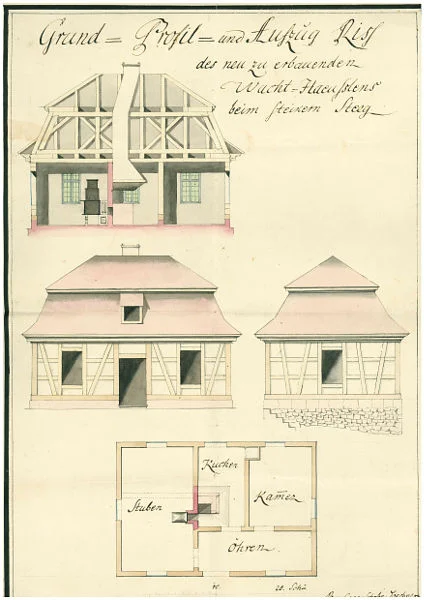 Grund = Profil = und Aufzug Riss
des neu zu erbauenden
Wacht = Haeusslens
beim Steg
Kuchen
Stuben
Kam̄er
Öhren
10. 20. Schu